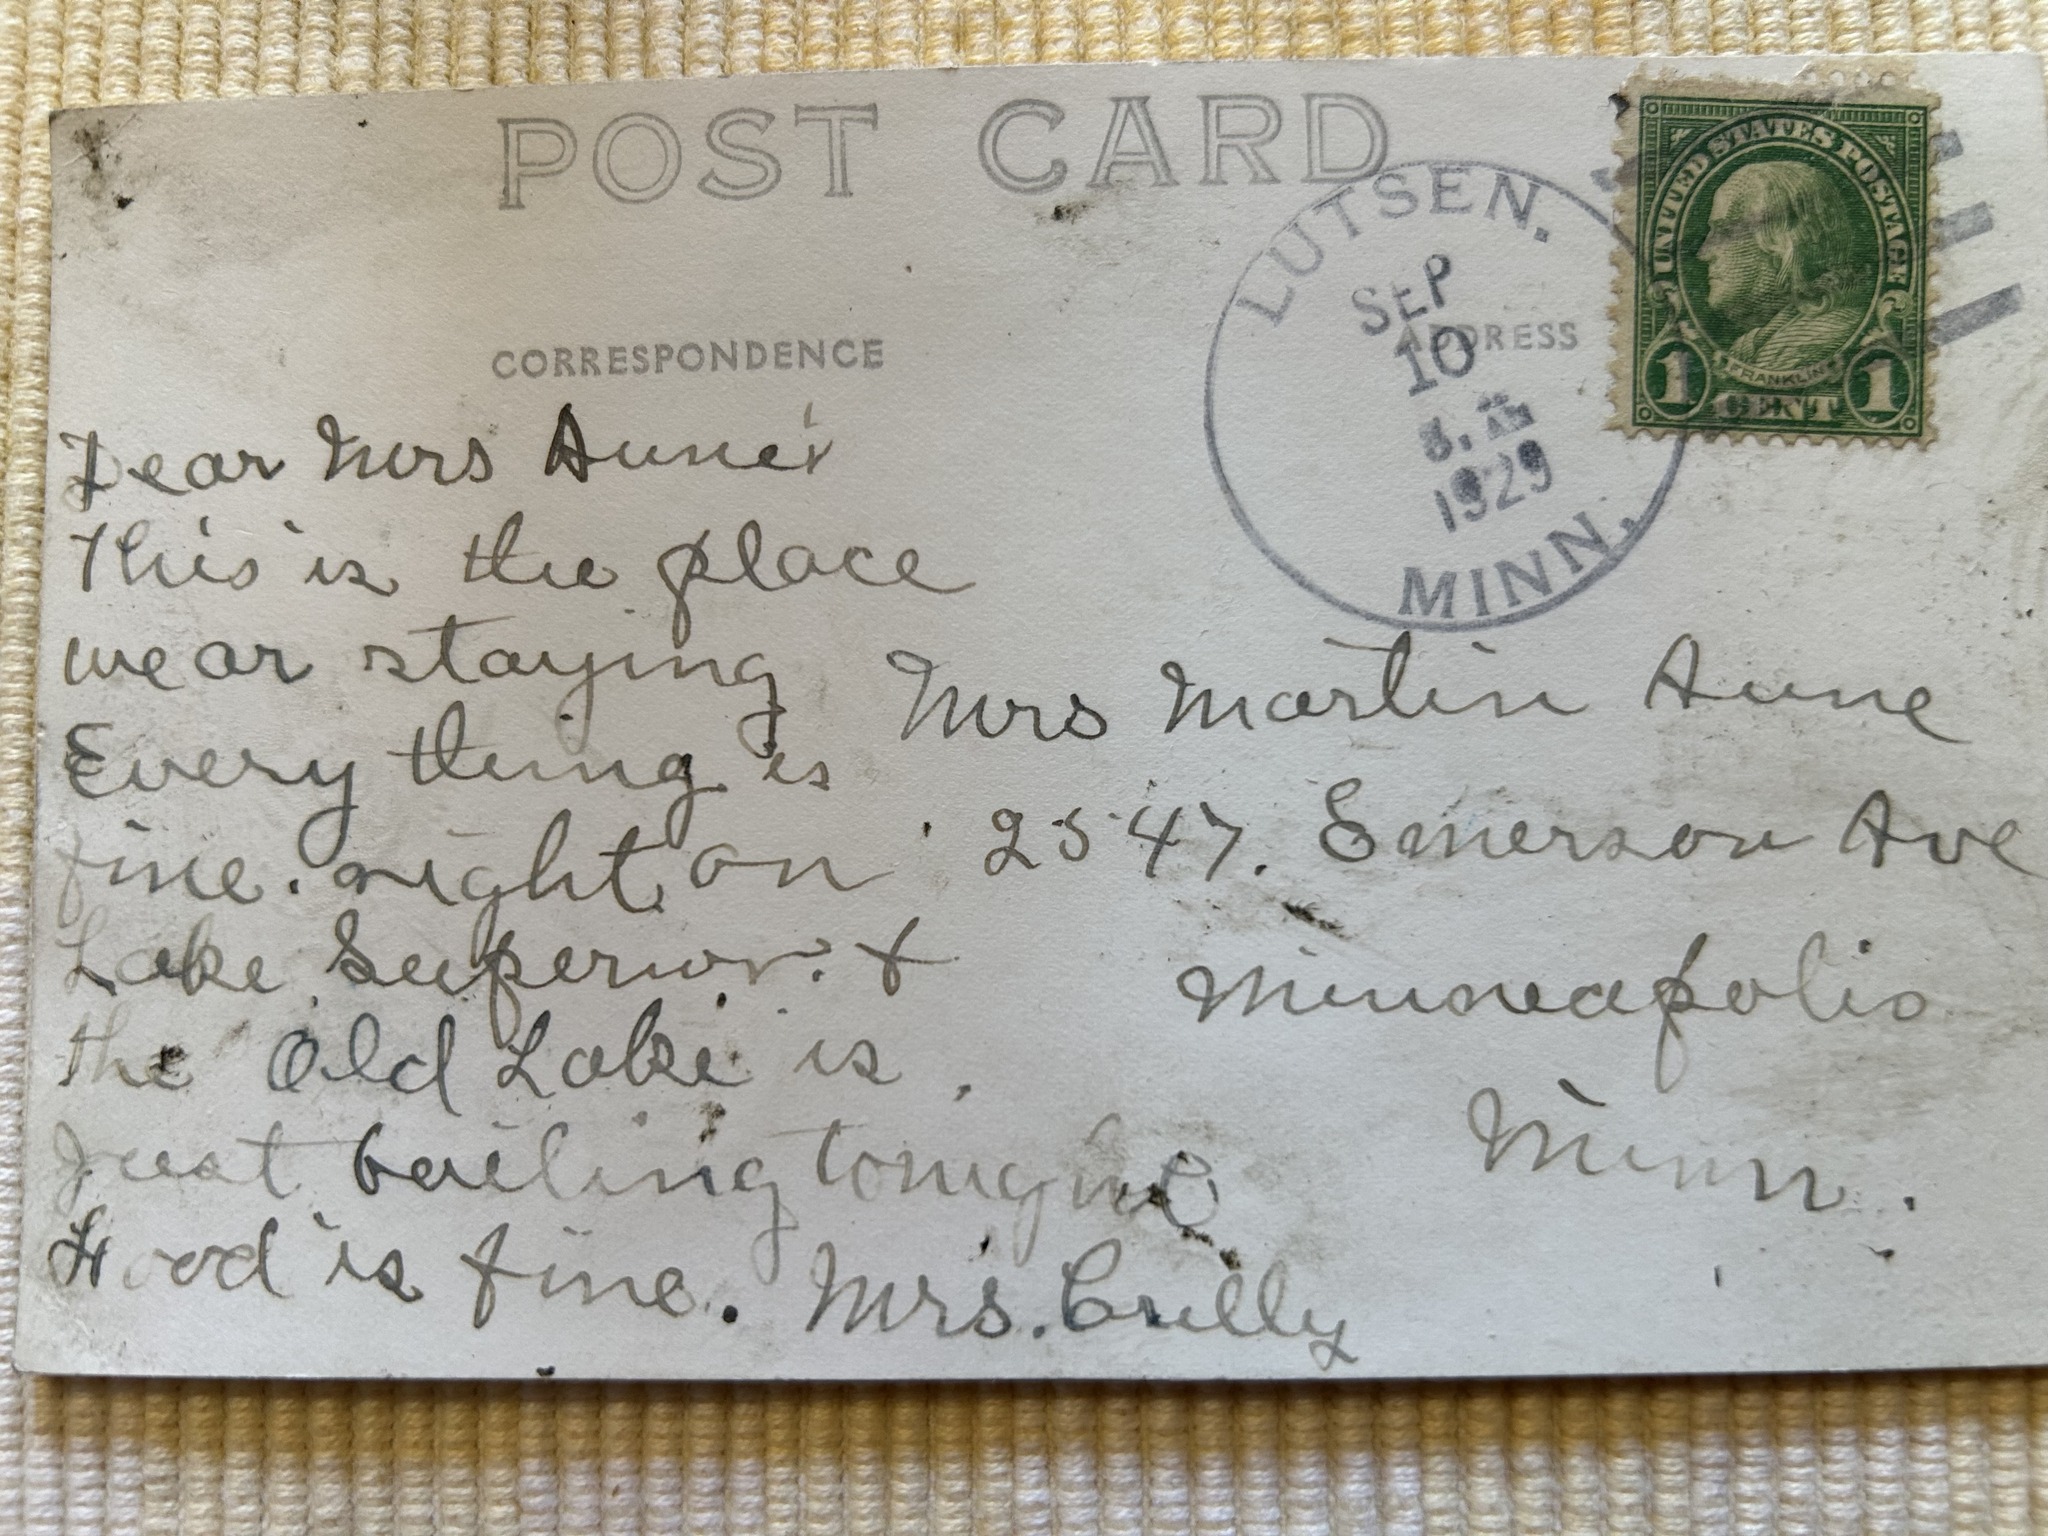 POST CARD
CORRESPONDENCE
ADDRESS
LUTSEN.
SEP
10
1929
MINN.
UNITED STATES POSTAGE
FRANKLIN
1 CENT 1
Dear Mrs Aune
This is the place
we ar staying
Every thing is
fine. right on
Lake Superior. &
the Old Lake is
just boiling tonight
Food is fine. Mrs.
Mrs Martin Aune
2547. Emerson Ave
Minneapolis
Minn.